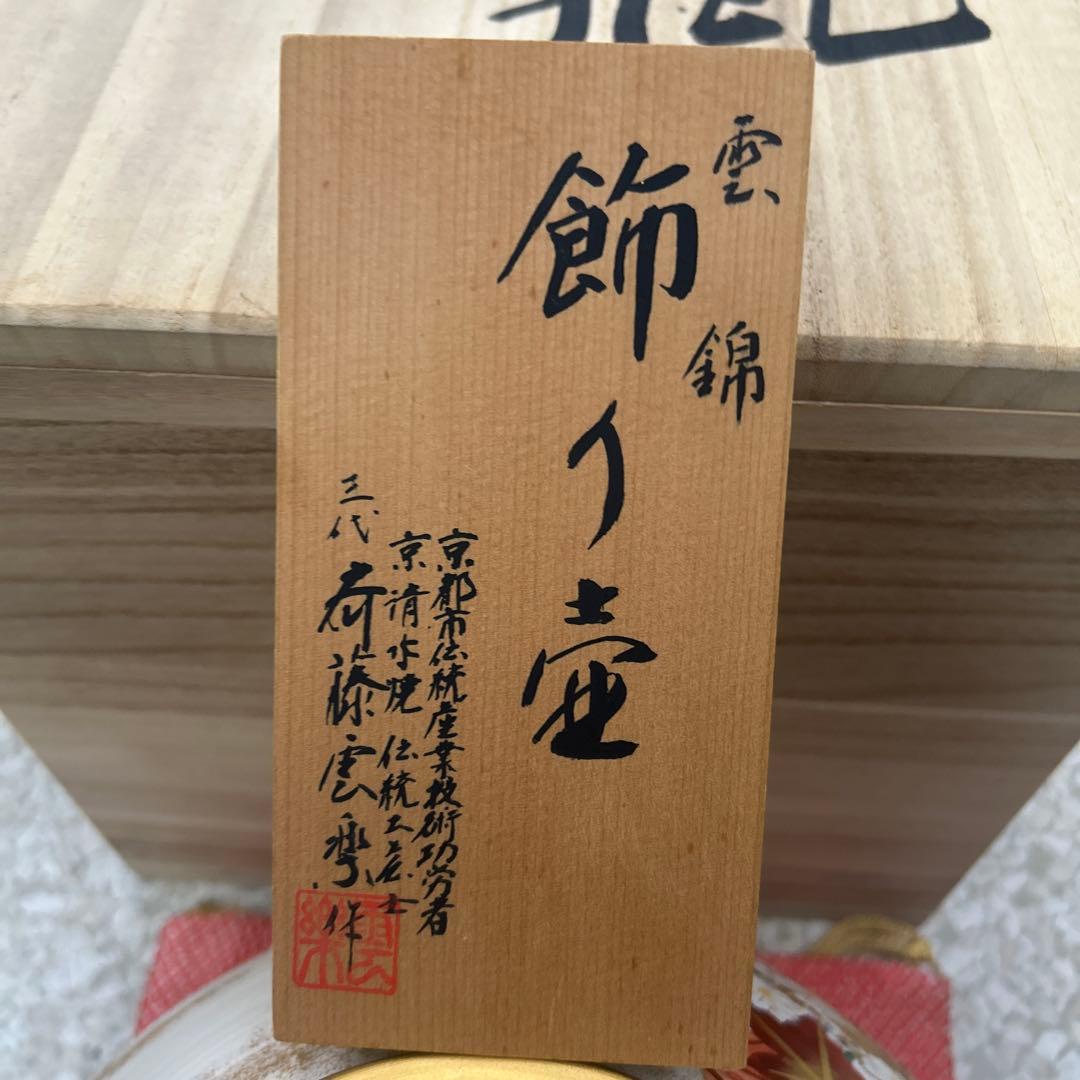 雲錦
飾り壷
京都市伝統産業技術功労者
京清水焼 伝統工芸士
三代 斎藤雲楽作
雲楽